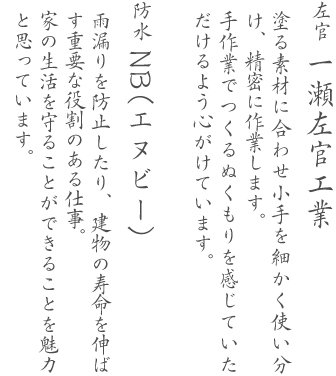 左官 一瀬左官工業
塗る素材に合わせ小手を細かく使い分
け、精密に作業します。
手作業でつくるぬくもりを感じていた
だけるよう心がけています。
防水 NB（エヌビー）
雨漏りを防止したり、建物の寿命を伸ば
す重要な役割のある仕事。
家の生活を守ることができることを魅力
と思っています。